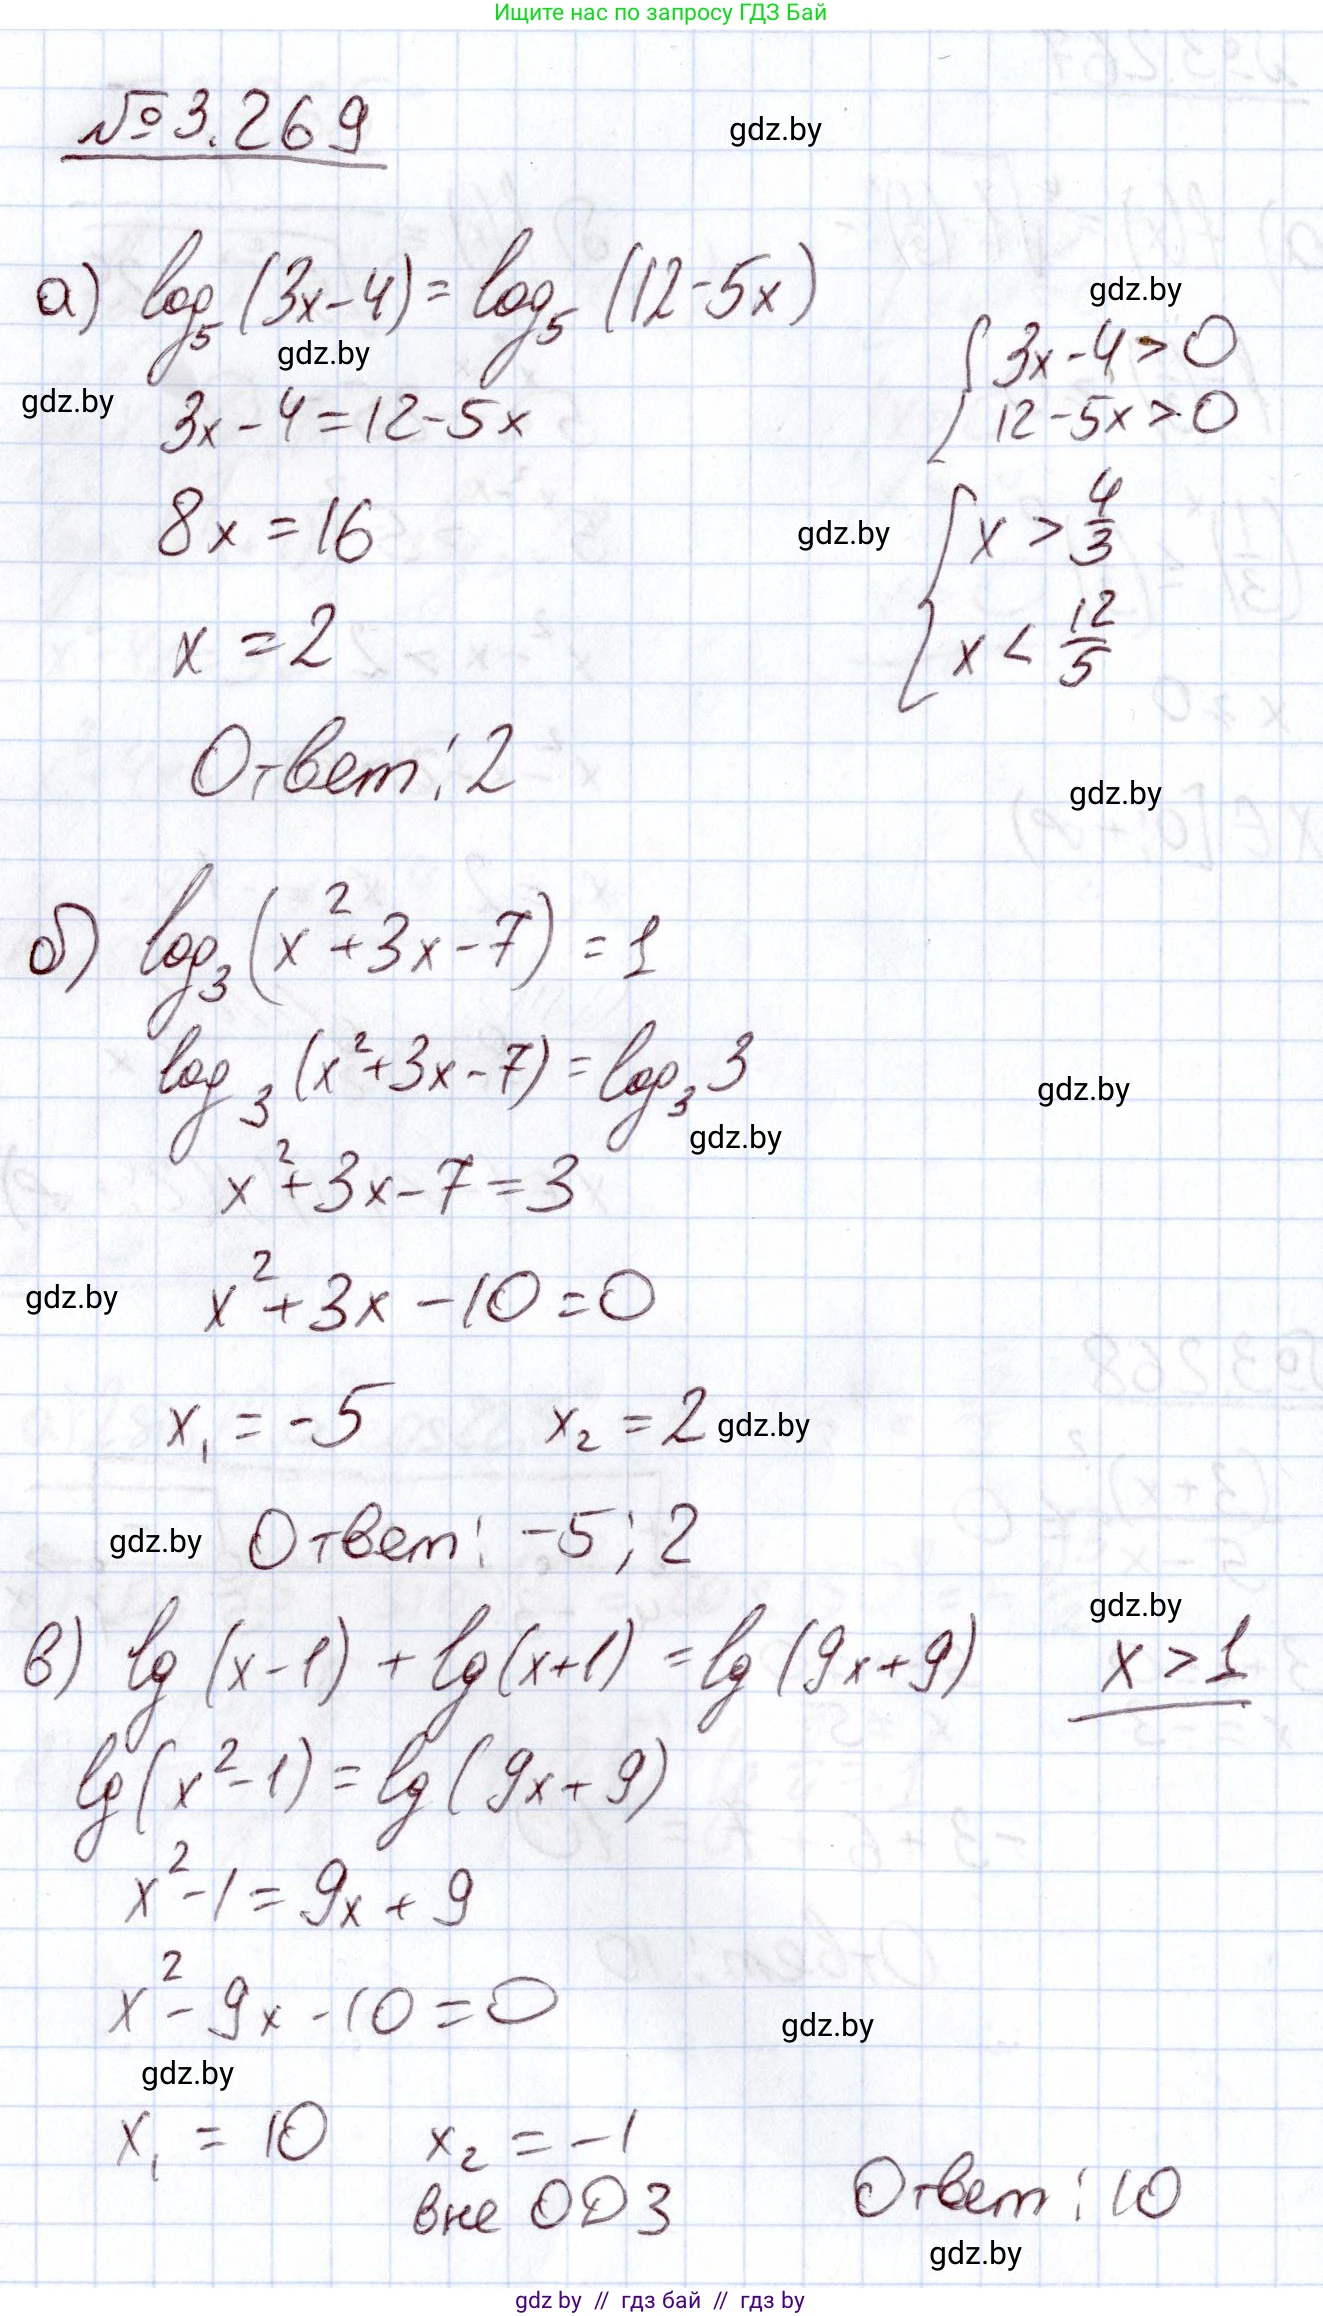 Ищите нас по запросу ГДЗ Бай
№3.269
gdz.by
а) log₅(3x-4)=log₅(12-5x)
gdz.by
{3x-4>0
12-5x>0
gdz.by
gdz.by
3x-4=12-5x
8x=16
gdz.by
{x>4/3
x<12/5
x=2
Ответ: 2
gdz.by
б) log₃(x²+3x-7)=1
log₃(x²+3x-7)=log₃3
gdz.by
gdz.by
x²+3x-7=3
gdz.by
x²+3x-10=0
x₁=-5 x₂=2
gdz.by
gdz.by
Ответ: -5; 2
gdz.by
в) lg(x-1)+lg(x+1)=lg(9x+9) x>1
lg(x²-1)=lg(9x+9)
x²-1=9x+9
x²-9x-10=0
gdz.by
gdz.by
x₁=10 x₂=-1
вне ОДЗ
Ответ: 10
gdz.by
gdz by // гдз бай // гдз by